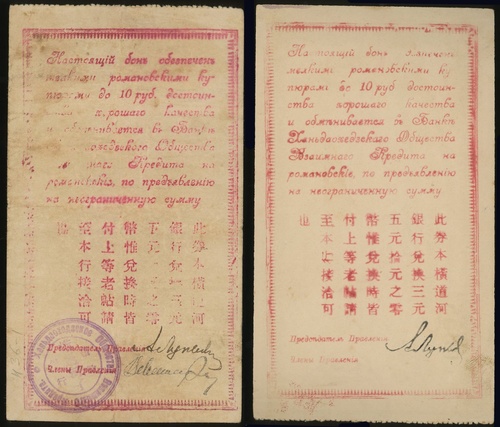 Настоящій бонъ обезпеченъ
мелкими романовскими ку
пюрами до 10 руб. достоин
хорошаго качества
и въ Банкѣ
Общества
Кредита на
романовскіе, по предъявленію
на неограниченную сумму
此券本道河
銀行
元
幣惟兌換時皆
付上等老帖請
至本行接洽可
也
Председатель Правленія
Члены Правленія
Настоящій бонъ
мелкими романовскими ку
пюрами до 10 руб. достоин
ства хорошаго качества
и обмѣнивается въ Банкѣ
Ханьдаохедзскаго Общества
Взаимнаго Кредита на
романовскіе, по предъявленію
на неограниченную сумму
此券本橫道河
銀行兌換三元
五元拾元之零
幣惟兌換時皆
付上等老帖請
至本行接洽可
也
Председатель Правленія
Члены Правленія